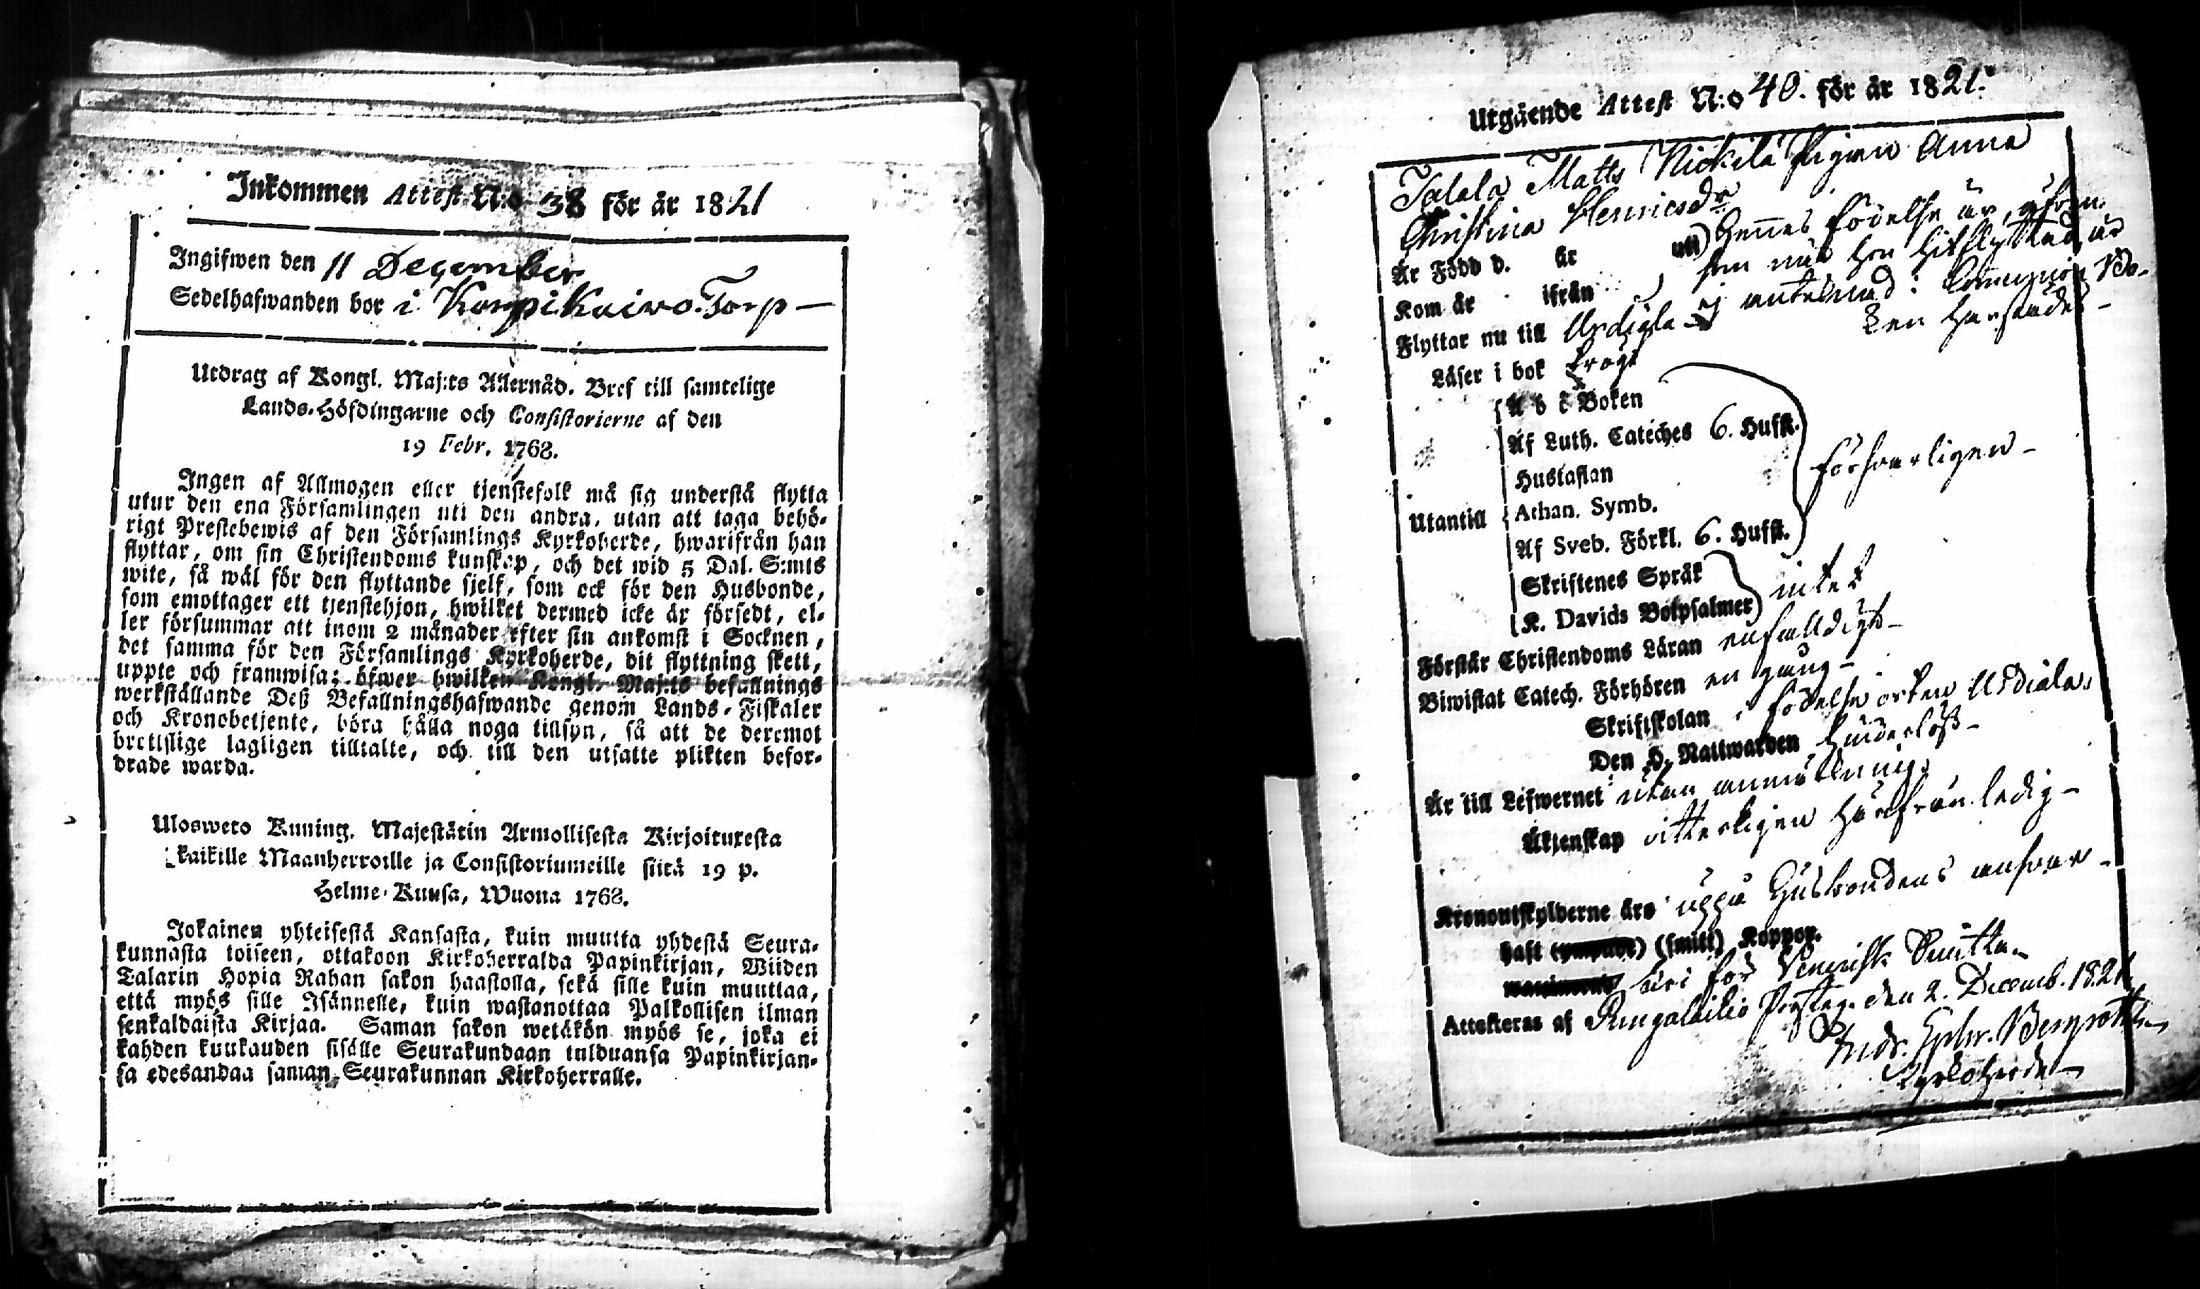 Inkommen Attest N:o 38 för år 1821
Ingifwen den 11 December
Sedelhafwanden bor i Korpi Kaivo Torp —
Utdrag af Kongl. Maj:ts Allernåd. Bref till samtelige
Lands-Höfdingarne och Consistorierne af den
19 Febr. 1768.
Ingen af Allmogen eller tjenstefolk må sig understå flytta
utur den ena Församlingen uti den andra, utan att taga behö-
rigt Prestebewis af den Församlings Kyrkoherde, hwarifrån han
flyttar, om sin Christendoms kunskap, och det wid 5 Dal. S:mts
wite, så wäl för den flyttande sjelf, som ock för den Husbonde,
som emottager ett tjenstehjon, hwilket dermed icke är försedt, el-
ler försummar att inom 2 månader efter sin ankomst i Socknen,
det samma för den Församlings Kyrkoherde, dit flyttning skett,
uppte och framwisa; öfwer hwilken Kongl. Maj:ts befallnings
werkställande Deß Befallningshafwande genom Lands-Fiskaler
och Kronobetjente, böra hålla noga tillsyn, så att de deremot
brottslige lagligen tilltalte, och till den utsatte plikten befor-
drade warda.
Ulosweto Kuning. Majestätin Armollisesta Kirjoituxesta
kaikille Maanherroille ja Consistoriumeille siitä 19 p.
Helme-Kuusa, Wuona 1768.
Jokainen yhteisestä Kansasta, kuin muutta yhdestä Seura-
kunnasta toiseen, ottakoon Kirkoherralda Papinkirjan, Wiiden
Talarin Hopia Rahan sakon haastolla, sekä sille kuin muuttaa,
että myös sille Isännelle, kuin wastanottaa Palkollisen ilman
senkaldaista Kirjaa. Saman sakon wetäkön myös se, joka ei
kahden kuukauden sisälle Seurakundaan tulduansa Papinkirjan-
sa edesandaa saman Seurakunnan Kirkoherralle.
Utgående Attest N:o 40. för år 1821.
Talala Matts Nickilä Pigan Anna
Christina Henricsdr
Är Född d. år uti) Hennes födelse år, äfven
Kom år ifrån ) som når hon hitflyttad, är
Flyttar nu till Urdiala ej antecknad i Communion Bo-
ken härstädes —
Läser i bok trögt
A b c Boken
Af Luth. Cateches 6. Hufst.
Hustaflan
försvarligen —
Utantill Athan. Symb.
Af Sveb. Förkl. 6. Hufst.
Skriftenes Språk
intet
K. Davids Botpsalmer
Förstår Christendoms Läran enfalldigt —
Biwistat Catech. Förhören en gång —
Skriftskolan i födelse orten Urdiala,
Den H. Nattwarden hinderlöst —
Är till Lefwernet utan anmärkning,
Äktenskap witterligen härifrån ledig —
Kronoutskylderne äro uppå Husbondens ansvar —
haft (smitt) Koppor.
fri för Venerisk Smitta
Attesteras af Pungalaitio Prosteg. den 2. Decemb. 1821
Kyrkoherde —